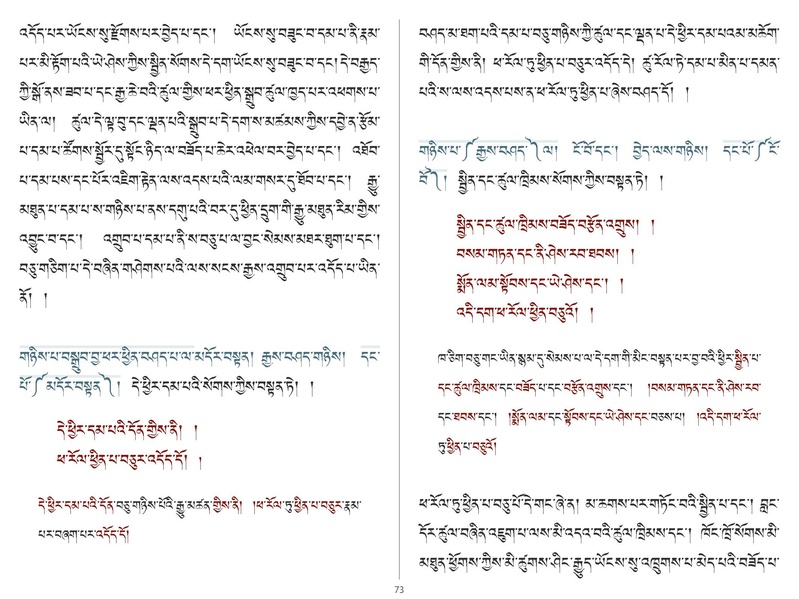 འདོད་པར་ཡོངས་སུ་རྫོགས་པར་བྱེད་པ་དང་། ཡོངས་སུ་བཟུང་བ་དམ་པ་ནི་རྣམ་
པར་མི་རྟོག་པའི་ཡེ་ཤེས་ཀྱིས་སྦྱིན་སོགས་དེ་དག་ཡོངས་སུ་བཟུང་བ་དང་། དེ་བརྒྱད་
ཀྱི་སྒོ་ནས་ཟབ་པ་དང་རྒྱ་ཆེ་བའི་ཚུལ་གྱིས་ཕར་ཕྱིན་སྒྲུབ་ཚུལ་ཁྱད་པར་འཕགས་པ་
ཡིན་ལ། ཚུལ་དེ་ལྟ་བུ་དང་ལྡན་པའི་སྒྲུབ་པ་དེ་དག་ས་མཚམས་ཀྱིས་དབྱེ་ན་རྩོམ་
པ་དམ་པ་ཚོགས་སྦྱོར་དུ་སྟོང་ཉིད་ལ་བཟོད་པ་ཆེར་འཕེལ་བར་བྱེད་པ་དང་། འཐོབ་
པ་དམ་པས་དང་པོར་འཇིག་རྟེན་ལས་འདས་པའི་ལམ་གསར་དུ་ཐོབ་པ་དང་། རྒྱུ་
མཐུན་པ་དམ་པ་ས་གཉིས་པ་ནས་དགུ་པའི་བར་དུ་ཕྱིན་དྲུག་གི་རྒྱུ་མཐུན་རིམ་གྱིས་
འབྱུང་བ་དང་། འགྲུབ་པ་དམ་པ་ནི་ས་བཅུ་པ་ལ་བྱང་སེམས་མཐར་ཐུག་པ་དང་།
བཅུ་གཅིག་པ་དེ་བཞིན་གཤེགས་པའི་ལས་སངས་རྒྱས་འགྲུབ་པར་འདོད་པ་ཡིན་
ནོ། །
གཉིས་པ་བསྒྲུབ་བྱ་ཕར་ཕྱིན་བཤད་པ་ལ་མདོར་བསྟན། རྒྱས་བཤད་གཉིས། དང་
པོ་༼མདོར་བསྟན༽། དེ་ཕྱིར་དམ་པའི་སོགས་ཀྱིས་བསྟན་ཏེ། །
དེ་ཕྱིར་དམ་པའི་དོན་གྱིས་ནི། །
ཕ་རོལ་ཕྱིན་པ་བཅུར་འདོད་དོ། །
དེ་ཕྱིར་དམ་པའི་དོན་བཅུ་གཉིས་པོའི་རྒྱུ་མཚན་གྱིས་ནི། །ཕ་རོལ་ཏུ་ཕྱིན་པ་བཅུར་རྣམ་
པར་བཞག་པར་འདོད་དོ།
བཤད་མ་ཐག་པའི་དམ་པ་བཅུ་གཉིས་ཀྱི་ཚུལ་དང་ལྡན་པ་དེ་ཕྱིར་དམ་པའམ་མཆོག་
གི་དོན་གྱིས་ནི། ཕ་རོལ་ཏུ་ཕྱིན་པ་བཅུར་འདོད་དེ། ཚུ་རོལ་ཏེ་དམ་པ་མིན་པ་དམན་
པའི་ས་ལས་འདས་པས་ན་ཕ་རོལ་ཏུ་ཕྱིན་པ་ཞེས་བཤད་དོ། །
གཉིས་པ་༼རྒྱས་བཤད་༽ལ། ངོ་བོ་དང་། བྱེད་ལས་གཉིས། དང་པོ་༼ངོ་
བོ༽། སྦྱིན་དང་ཚུལ་ཁྲིམས་སོགས་ཀྱིས་བསྟན་ཏེ། །
སྦྱིན་དང་ཚུལ་ཁྲིམས་བཟོད་བརྩོན་འགྲུས། །
བསམ་གཏན་དང་ནི་ཤེས་རབ་ཐབས། །
སྨོན་ལམ་སྟོབས་དང་ཡེ་ཤེས་དང་། །
འདི་དག་ཕ་རོལ་ཕྱིན་བཅུའོ། །
ཁ་ཅིག་བཅུ་གང་ཡིན་སྙམ་དུ་སེམས་པ་ལ་དེ་དག་གི་མིང་བསྟན་པར་བྱ་བའི་ཕྱིར་སྦྱིན་པ་
དང་ཚུལ་ཁྲིམས་དང་བཟོད་པ་དང་བརྩོན་འགྲུས་དང་། །བསམ་གཏན་དང་ནི་ཤེས་རབ་
དང་ཐབས་དང་། །སྨོན་ལམ་དང་སྟོབས་དང་ཡེ་ཤེས་དང་བཅས་པ། །འདི་དག་ཕ་རོལ་
ཏུ་ཕྱིན་པ་བཅུའོ།
ཕ་རོལ་ཏུ་ཕྱིན་པ་བཅུ་པོ་དེ་གང་ཞེ་ན། མ་ཆགས་པར་གཏོང་བའི་སྦྱིན་པ་དང་། བླང་
དོར་ཚུལ་བཞིན་འཇུག་པ་ལས་མི་འདའ་བའི་ཚུལ་ཁྲིམས་དང་། ཁོང་ཁྲོ་སོགས་མི་
མཐུན་ཕྱོགས་ཀྱིས་མི་ཚུགས་ཤིང་རྒྱུད་ཡོངས་སུ་འཁྲུགས་པ་མེད་པའི་བཟོད་པ་
73